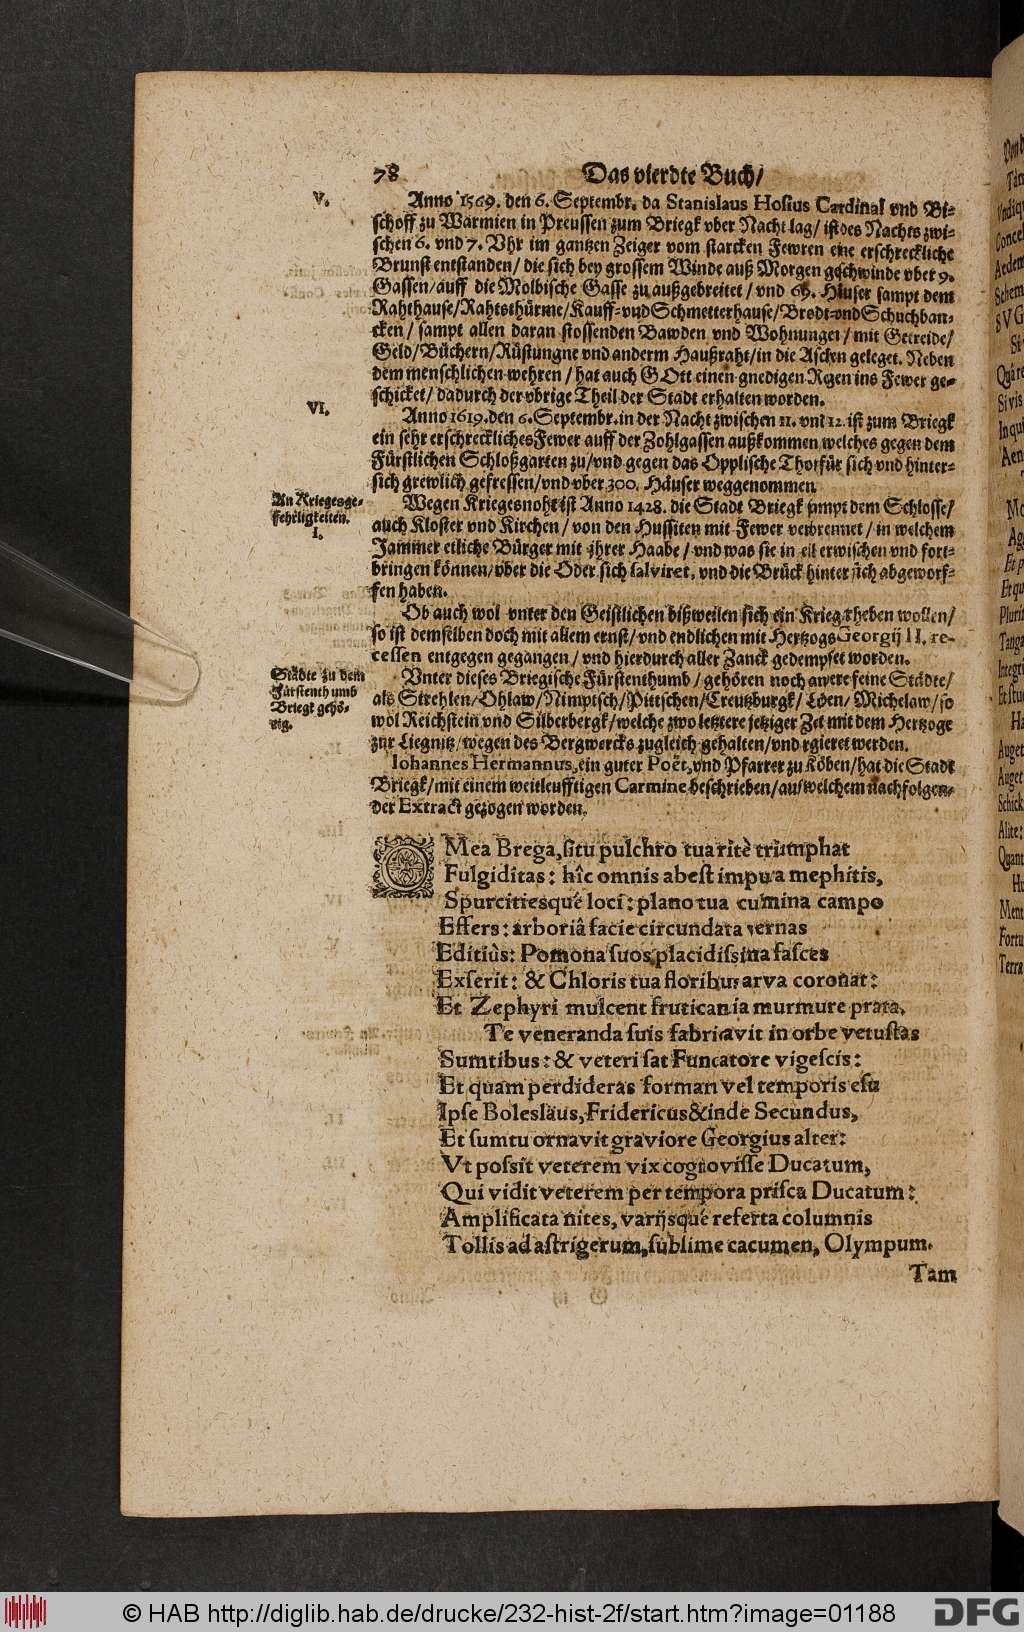 78 Das vierdte Buch/
V. Anno 1569. den 6. Septembr. da Stanislaus Hosius Cardinal vnd Bi-
schoff zu Warmien in Preussen zum Briegk vber Nacht lag/ ist des Nachts zwi-
schen 6. vnd 7. Vhr im gantzen Zeiger vom starcken Fewren eine erschreckliche
Brunst entstanden/ die sich bey grossem Winde auß Morgen geschwinde vber 9.
Gassen/ auff die Molbische Gasse zu außgebreitet/ vnd 69. Häuser sampt dem
Rahthause/ Rahtsthürme/ Kauff- vnd Schmetterhause/ Brodt- vnd Schuchban-
cken/ sampt allen daran stossenden Bawden vnd Wohnungen/ mit Getreide/
Geld/ Büchern/ Rüstungne vnd anderm Haußraht/ in die Aschen geleget. Neben
dem menschlichen wehren/ hat auch GOtt einen gnedigen Regen ins Fewer ge-
schicket/ dadurch der vbrige Theil der Stadt erhalten worden.
VI. Anno 1619. den 6. Septembr. in der Nacht zwischen 11. vnd 12. ist zum Briegk
ein sehr erschreckliches Fewer auff der Zohlgassen außkommen welches gegen dem
Fürstlichen Schloßgarten zu/ vnd gegen das Opplische Thor für sich vnd hinter-
sich grewlich gefressen/ vnd vber 300. Häuser weggenommen.
An Kriegesge-
fehrligkeiten.
I.
Wegen Kriegesnoht ist Anno 1428. die Stadt Briegk sampt dem Schlosse/
auch Kloster vnd Kirchen/ von den Hussiten mit Fewer verbrennet/ in welchem
Jammer etliche Bürger mit jhrer Haabe/ vnd was sie in eil erwischen vnd fort-
bringen können/ vber die Oder sich salviret, vnd die Brück hinter sich abgeworf-
fen haben.
Ob auch wol vnter den Geistlichen bißweilen sich ein Krieg erheben wollen/
so ist demselben doch mit allem ernst/ vnd endlichen mit Hertzogs Georgij II. re-
cessen entgegen gegangen/ vnd hierdurch aller Zanck gedempfet worden.
Städte zu dem
Fürstenthumb
Briegk gehö-
rig.
Vnter dieses Briegische Fürstenthumb/ gehören noch andere feine Städte/
als Strehlen/ Ohlaw/ Nimptsch/ Pittschen/ Creutzburgk/ Löen/ Michelaw/ so
wol Reichstein vnd Silberbergk/ welche zwo letztere jetziger Zeit mit dem Hertzoge
zur Liegnitz/ wegen des Bergwercks zugleich gehalten/ vnd regieret werden.
Iohannes Hermannus, ein guter Poët, vnd Pfarrer zu Köben/ hat die Stadt
Briegk/ mit einem weitleufftigen Carmine beschrieben/ auß welchem nachfolgen-
der Extract gezogen worden.
O Mea Brega, situ pulchro tua ritè triumphat
Fulgiditas: hîc omnis abest impura mephitis,
Spurcitiesqué loci: plano tua culmina campo
Effers: arboriâ facie circundata vernas
Editiùs: Pomona suos placidissima fasces
Exserit: & Chloris tua floribus arva coronat:
Et Zephyri mulcent fruticantia murmure prata,
Te veneranda suis fabricavit in orbe vetustas
Sumtibus: & veteri sat Funcatore vigescis:
Et quam perdideras formam vel temporis esu
Ipse Boleslaus, Fridericus & inde Secundus,
Et sumtu ornavit graviore Georgius alter:
Vt possit veterem vix cognovisse Ducatum,
Qui vidit veterem per tempora prisca Ducatum:
Amplificata nites, varijsqué referta columnis
Tollis ad astrigerum, sublime cacumen, Olympum.
Tam
© HAB http://diglib.hab.de/drucke/232-hist-2f/start.htm?image=01188
DFG